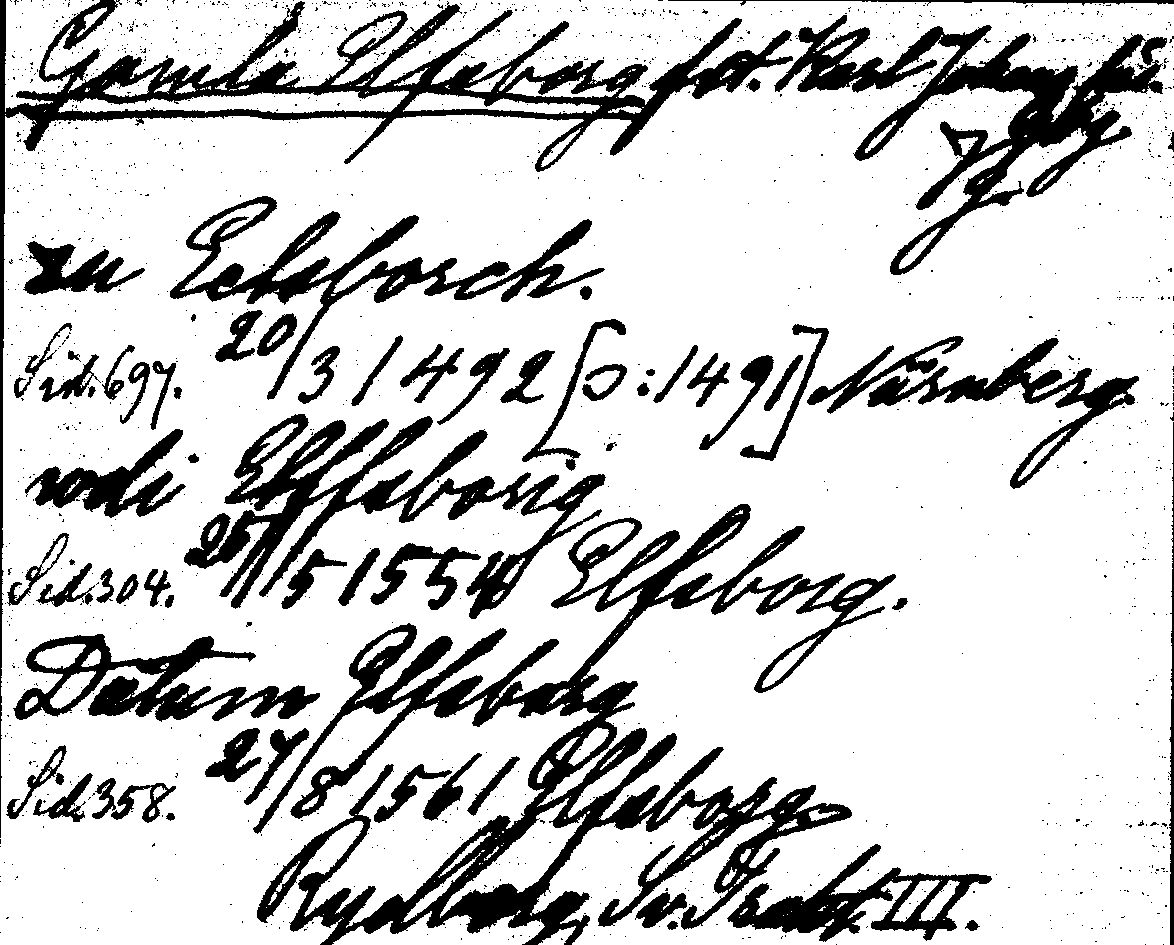 Gamla Elfsborg fst. Karl Johans för.
Gbg.
Vg.
zu Eelsborch.
Sid. 697. 20/3 1492 [ɔ: 1491] Nürnberg
vodi Elffsborig
Sid. 304. 25/5 1554 Elfsborg.
Datum Elfsborg
Sid. 358. 27/8 1561 Elfsborg.
Rydberg, Sv. Trakt. III.